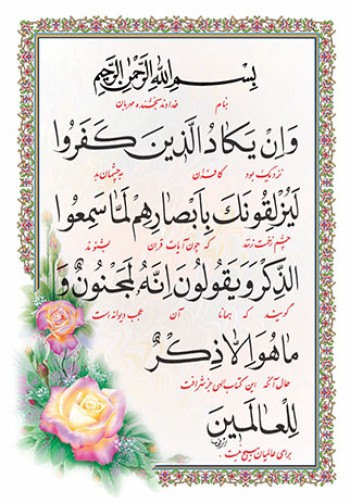 بِسْمِ اللهِ الرَّحْمٰنِ الرَّحِيمِ
بنام خداوند بخشنده مهربان
وَاِنْ يَكَادُ الَّذينَ كَفَرُوا
نزدیک بود کافران به چشمهای بد
لَيُزْلِقُونَكَ بِاَبْصَارِهِمْ لَمَّا سَمِعُوا
چشم زخمت زنند که چون آیات قرآن بشنوند
الذِّكْرَ وَيَقُولُونَ اِنَّهُ لَمَجْنُونٌ وَ
گویند که همانا آن عجب دیوانه است
مَا هُوَ اِلَّا ذِكْرٌ
حال آنکه این کتاب الهی جز شرافت
لِلْعَالَمينَ
برای عالمیان هیچ نیست .